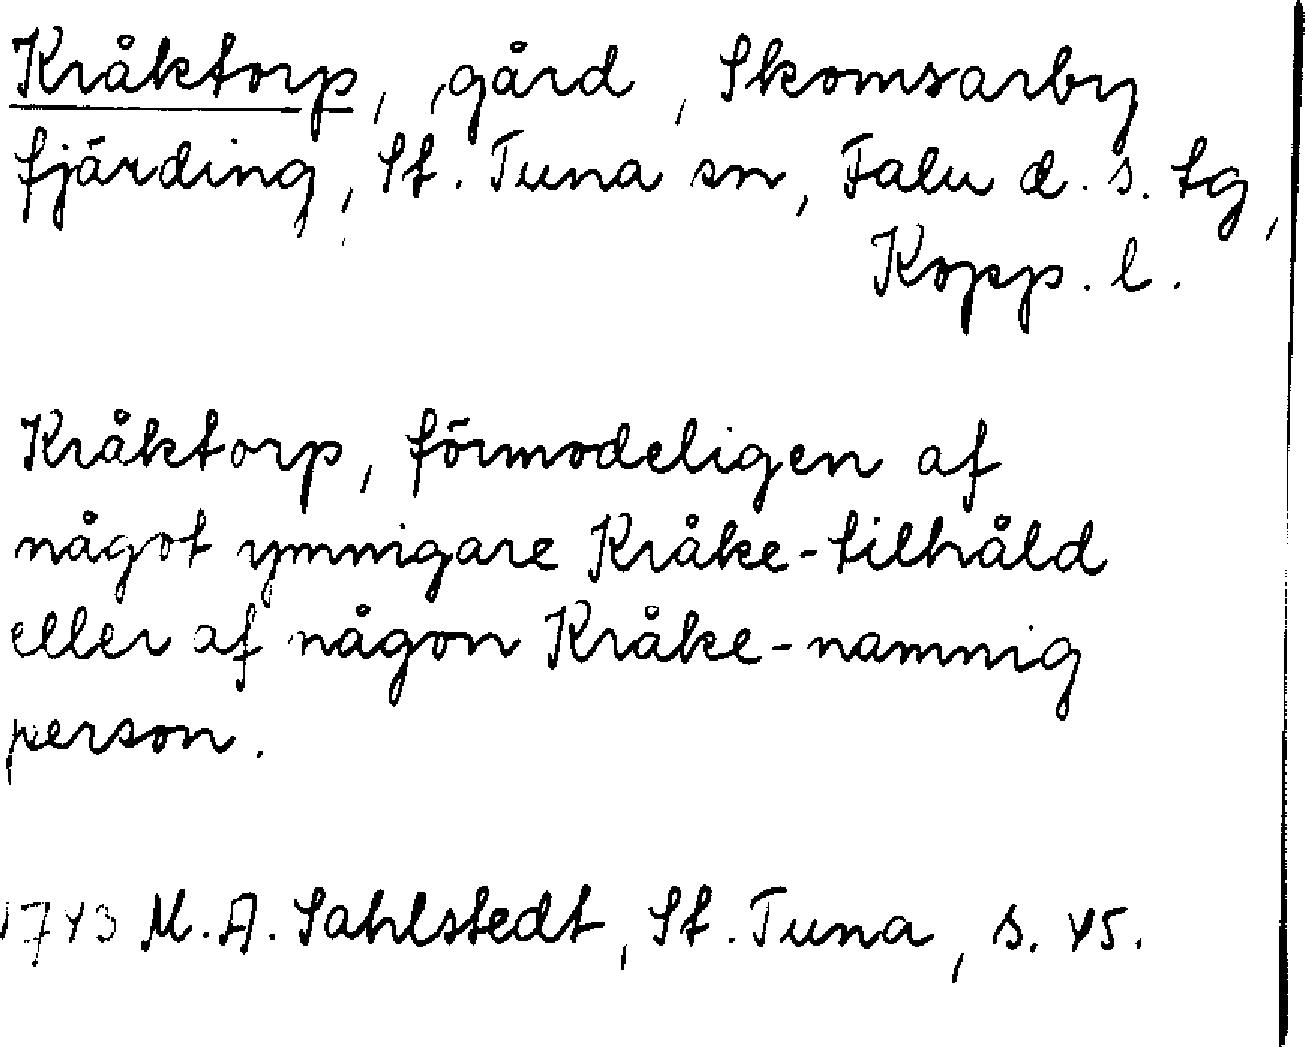 Kråktorp, gård, Skomsarby
fjärding, St. Tuna sn, Falu d. s. tg,
Kopp. l.
Kråktorp, förmodeligen af
något ymnigare Kråke-tilhåld
eller af någon Kråke-namnig
person.
1743 M. A. Sahlstedt, St. Tuna, s. 45.